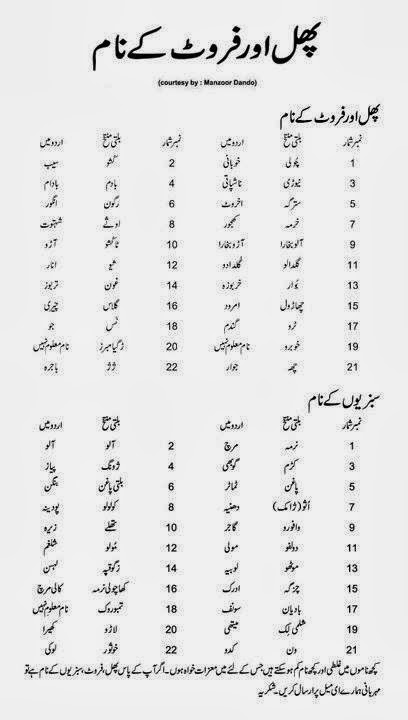 پھل اور فروٹ کے نام
(courtesy by : Manzoor Dando)
پھل اور فروٹ کے نام
نمبر شمار بلتی منخ اردو میں نمبر شمار بلتی منخ اردو میں
1 چُولی خوبانی 2 کُشو سیب
3 نیوڑی ناشپاتی 4 بادم بادام
5 سترگہ اخروٹ 6 رگون انگور
7 خرمہ کھجور 8 اوشے شہتوت
9 آلو بخارا آڑو بخارا 10 تاکشو آڑو
11 گلدالو گلدادو 12 شیو انار
13 بُوار خربوزہ 14 غون تربوز
15 چھاڑول امرود 16 گلاس چیری
17 ترو گندم 18 نس جو
19 خوبرو نام معلوم نہیں 20 زگیامبرز نام معلوم نہیں
21 چھہ جوار 22 ژژ باجرہ
سبزیوں کے نام
نمبر شمار بلتی منخ اردو میں نمبر شمار بلتی منخ اردو میں
1 نرمہ مرچ 2 آلو آلو
3 کڑم گوبھی 4 ژونگ پیاز
5 پاغن ٹماٹر 6 بلتی پاغن بینگن
7 اُشُو (ژانک) دھنیہ 8 کولولو پودینہ
9 وافورو گاجر 10 تھلے زیرہ
11 دولفو مولی 12 مُولو شلغم
13 موٹھو لوبیہ 14 زگوقپہ لہسن
15 چزگہ ادرک 16 کھاچولی نرمہ کالی مرچ
17 بادیان سونف 18 تمبوروک نام معلوم نہیں
19 شلمی لک میتھی 20 لارو کھیرا
21 ون کدو 22 خوثور لوکی
کچھ ناموں میں غلطی اور کچھ نام کم ہو سکتے ہیں جس کے لئے میں معزات خواہ ہوں۔ اگر آپ کے پاس پھل، فروٹ، سبزیوں کے نام ہے تو
مہربانی ہمارے ای میل پر ارسال کریں۔ شکریہ